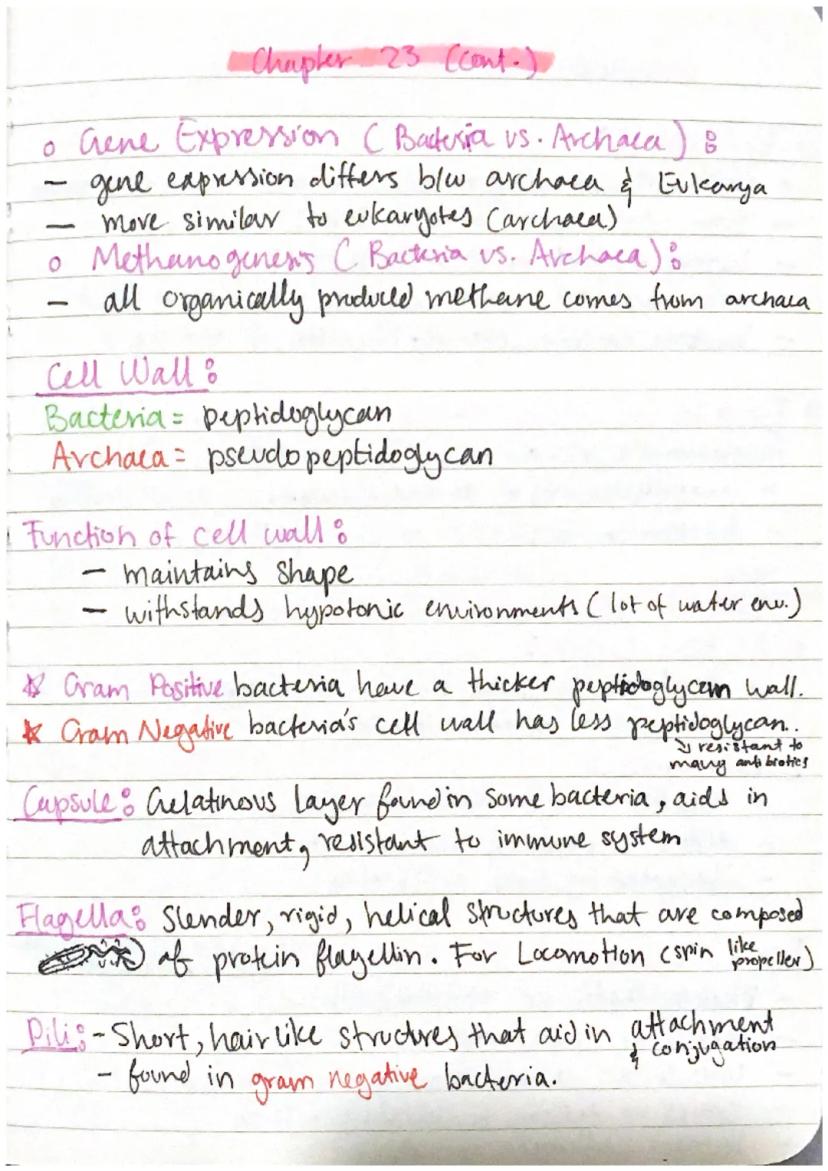 Chapter 23 (cont.)
o Gene Expression (Bacteria vs. Archaea):
– gene expression differs b/w archaea & Eukarya
– more similar to eukaryotes (archaea)
o Methanogenesis (Bacteria vs. Archaea):
– all organically produced methane comes from archaea
Cell Wall:
Bacteria = peptidoglycan
Archaea = pseudopeptidoglycan
Function of cell wall:
– maintains shape
– withstands hypotonic environments (lot of water env.)
☆ Gram Positive bacteria have a thicker peptidoglycan wall.
☆ Gram Negative bacteria's cell wall has less peptidoglycan.
↳ resistant to
many antibiotics
Capsule: Gelatinous layer found in some bacteria, aids in
attachment, resistant to immune system
Flagella: Slender, rigid, helical structures that are composed
of protein flagellin. For Locomotion (spin like propeller)
Pili: - Short, hairlike structures that aid in attachment
& conjugation
- found in gram negative bacteria.